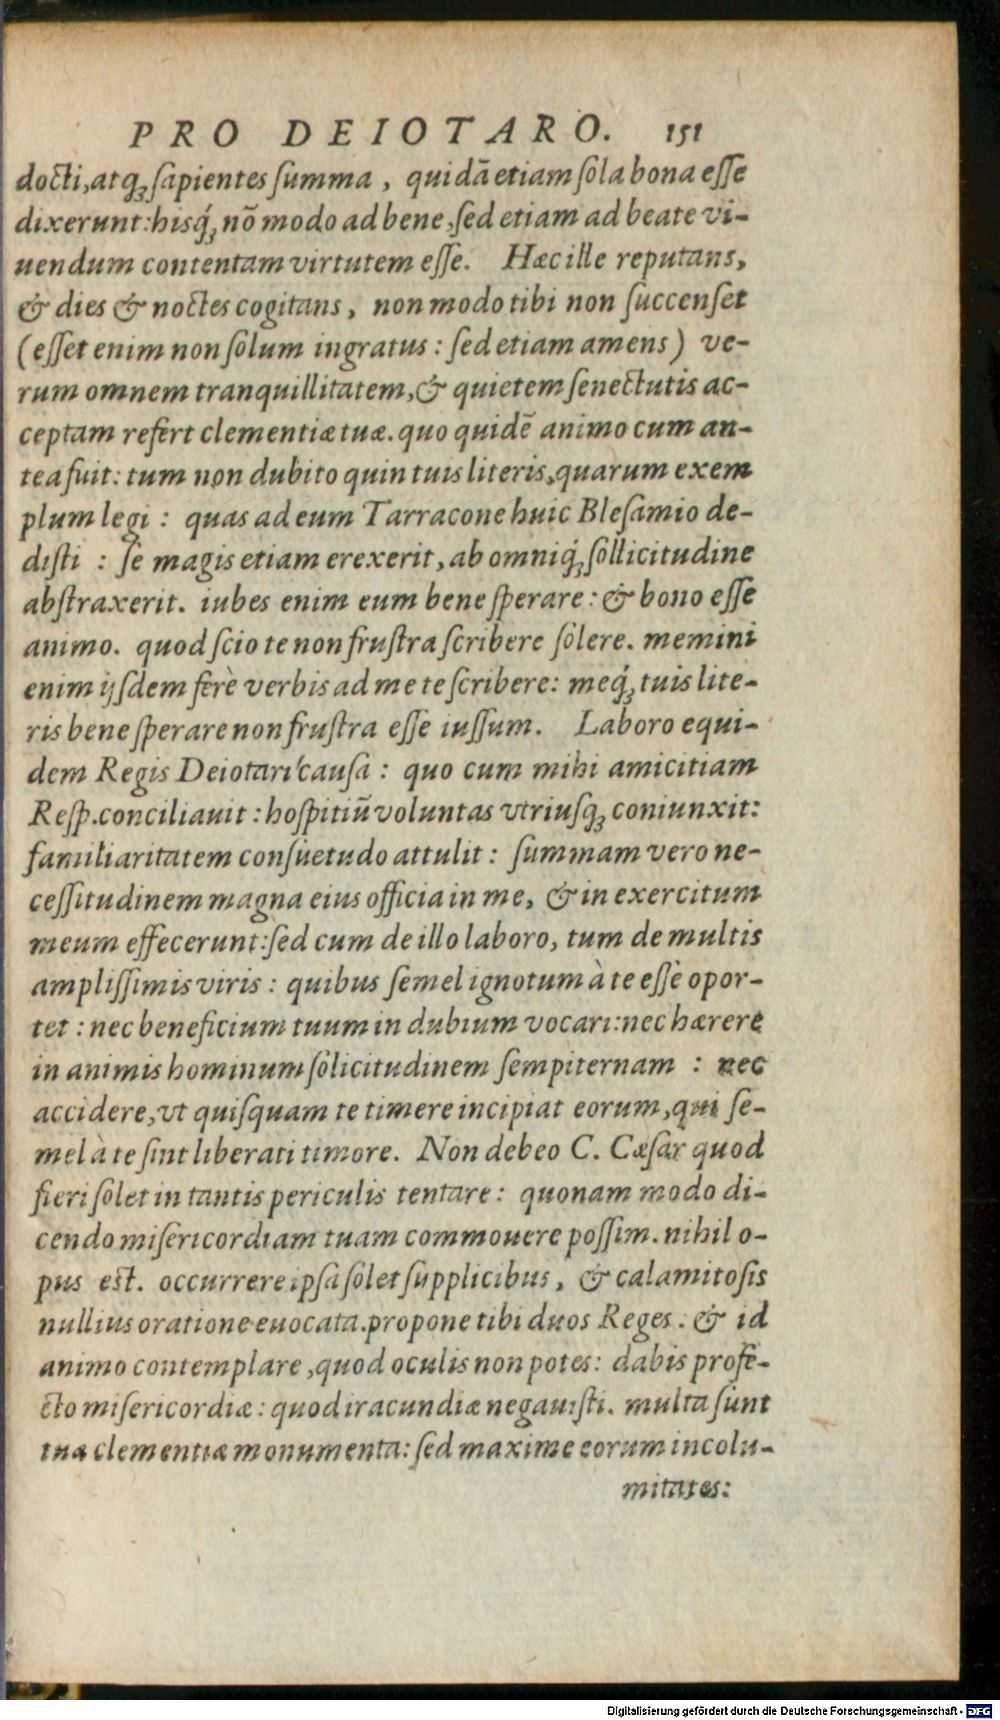 PRO DEIOTARO. 151
docti, atq; sapientes summa, quidā etiam sola bona esse
dixerunt: hisq́; nō modo ad bene, sed etiam ad beate vi-
uendum contentam virtutem esse. Hæc ille reputans,
& dies & noctes cogitans, non modo tibi non succenset
(esset enim non solum ingratus: sed etiam amens) ve-
rum omnem tranquillitatem, & quietem senectutis ac-
ceptam refert clementiæ tuæ. quo quidē animo cum an-
tea fuit: tum non dubito quin tuis literis, quarum exem
plum legi: quas ad eum Tarracone huic Blesamio de-
disti: se magis etiam erexerit, ab omniq́; sollicitudine
abstraxerit. iubes enim eum bene sperare: & bono esse
animo. quod scio te non frustra scribere solere. memini
enim ijsdem ferè verbis ad me te scribere: meq́; tuis lite-
ris bene sperare non frustra esse iussum. Laboro equi-
dem Regis Deiotari causa: quo cum mihi amicitiam
Resp. conciliauit: hospitiū voluntas vtriusq; coniunxit:
familiaritatem consuetudo attulit: summam vero ne-
cessitudinem magna eius officia in me, & in exercitum
meum effecerunt: sed cum de illo laboro, tum de multis
amplissimis viris: quibus semel ignotum à te esse opor-
tet: nec beneficium tuum in dubium vocari: nec hærere
in animis hominum solicitudinem sempiternam: nec
accidere, vt quisquam te timere incipiat eorum, qui se-
mel à te sint liberati timore. Non debeo C. Cæsar quod
fieri solet in tantis periculis tentare: quonam modo di-
cendo misericordiam tuam commouere possim. nihil o-
pus est. occurrere ipsa solet supplicibus, & calamitosis
nullius oratione euocata. propone tibi duos Reges. & id
animo contemplare, quod oculis non potes: dabis profe-
cto misericordiæ: quod iracundiæ negauisti. multa sunt
tuæ clementiæ monumenta: sed maxime eorum incolu-
mitates:
Digitalisierung gefördert durch die Deutsche Forschungsgemeinschaft - DFG